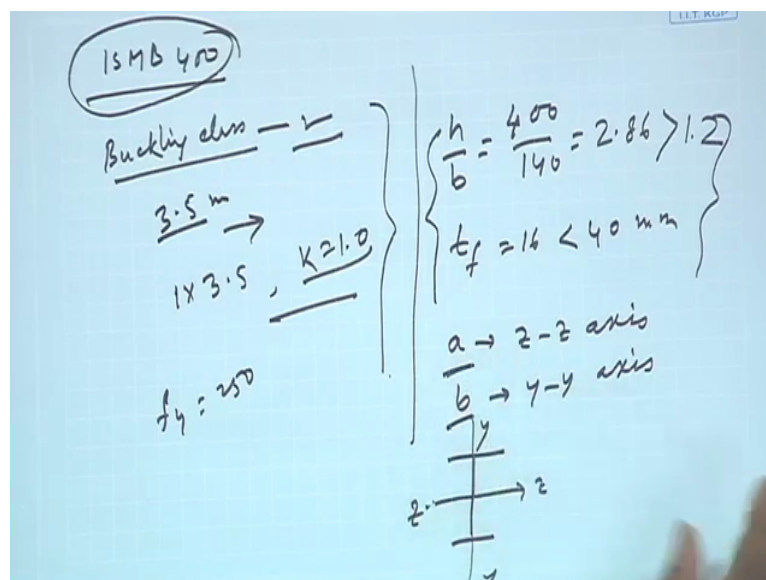 I.I.T. KGP
ISMB 400
Buckling class —
3.5 m →
1 x 3.5 , K = 1.0
fy = 250
h/b = 400/140 = 2.86 > 1.2
tf = 16 < 40 mm
a → z-z axis
b → y-y axis
y
z z
y